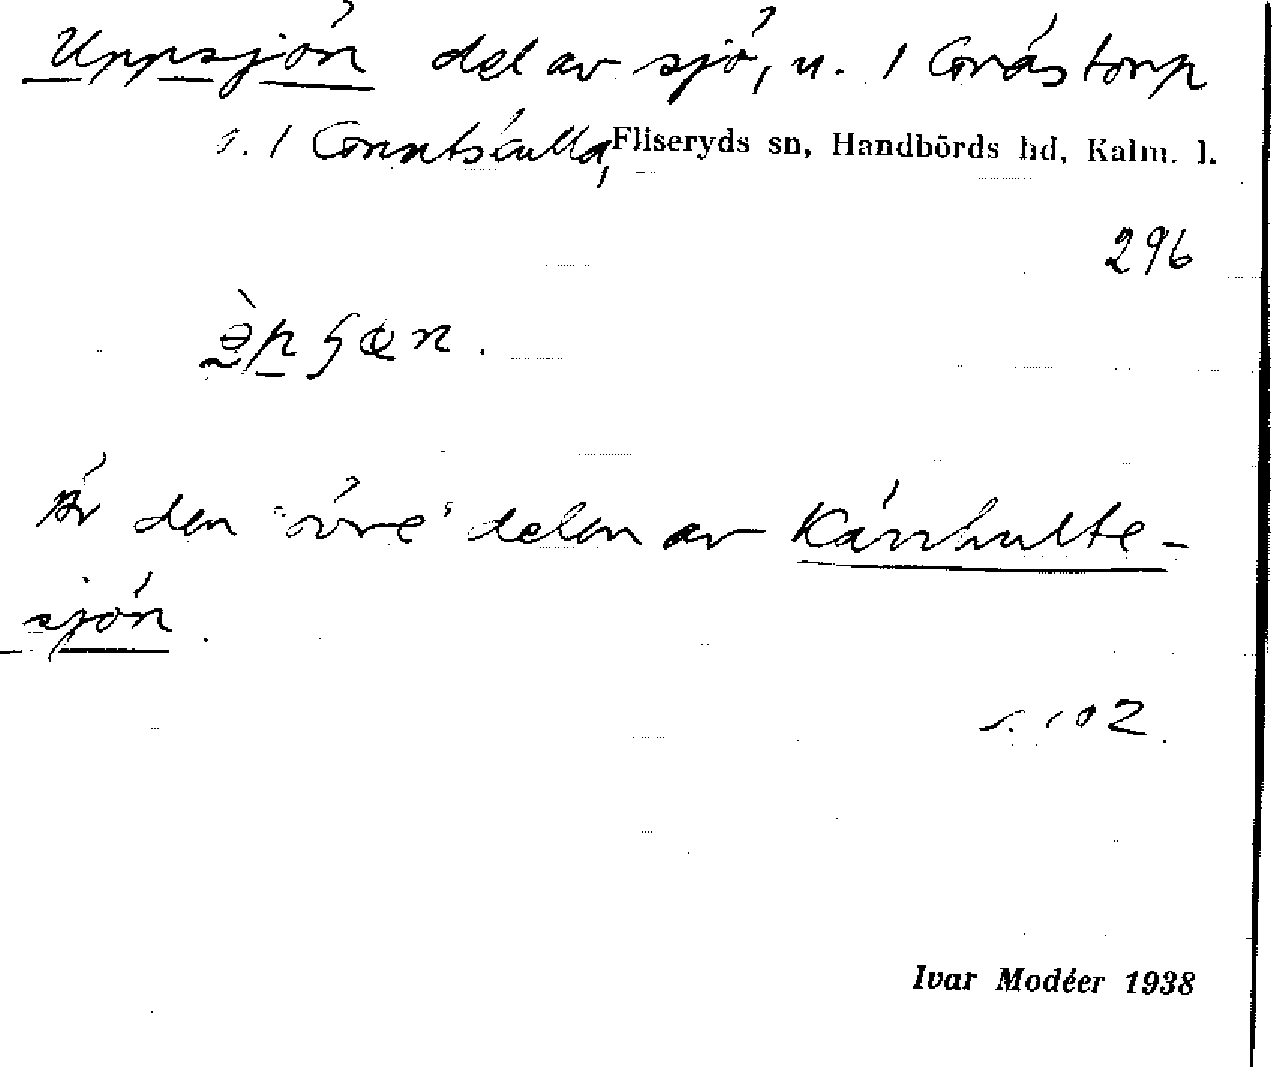 Uppsjön del av sjö, u. 1 Gråstorp
o. 1 Fliseryds sn, Handbörds hd, Kalm. l.
296
Är den "övre" delen av Kärrhulte-
sjön.
s. 102.
Ivar Modéer 1938